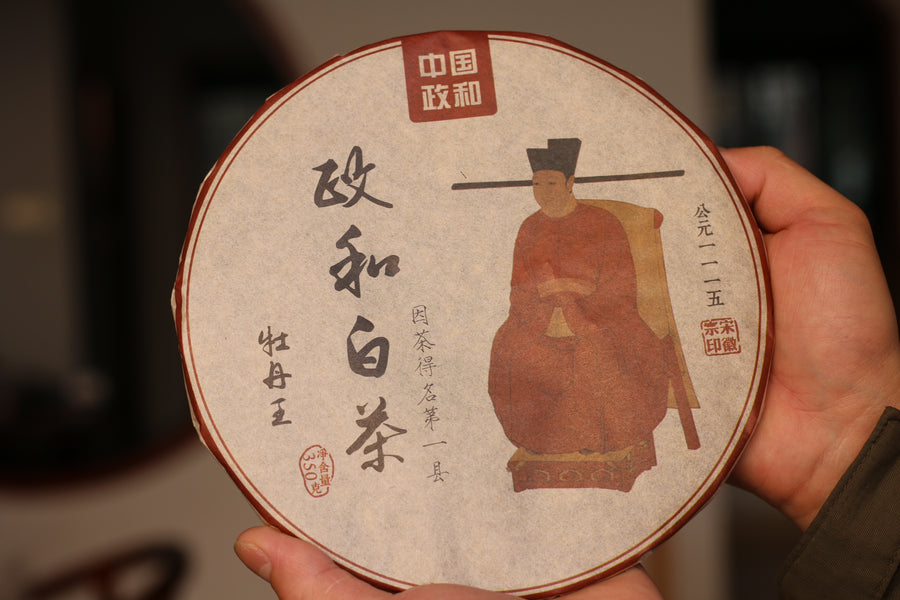 中国
政和
公元一一一五
宋徽
宗印
因茶得名第一县
政和白茶
牡丹王
净含量
350克